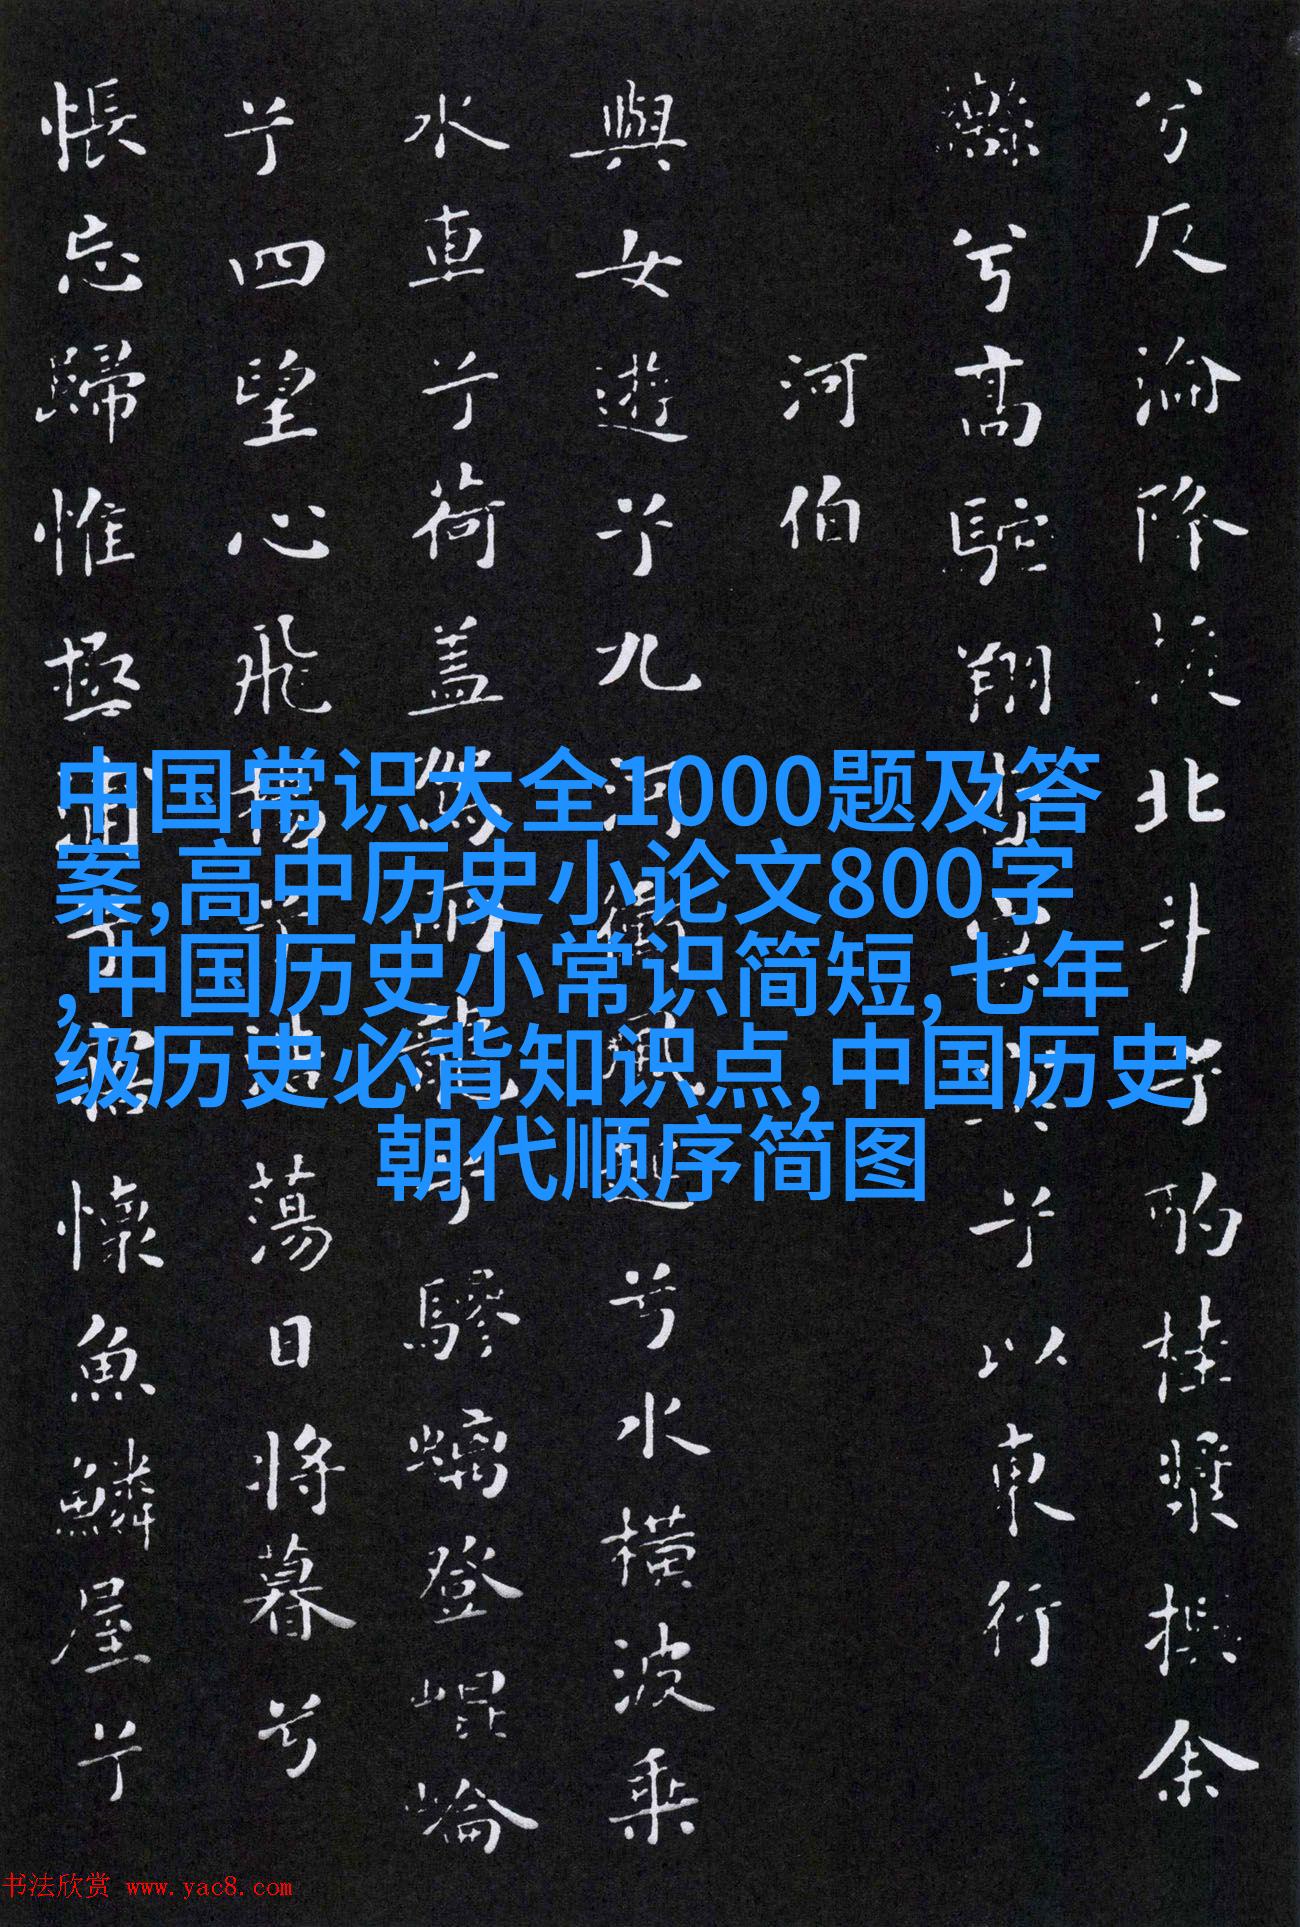 兮反淪降援北斗兮酌桂漿撰余
轡兮高駝翔兮以東行
河伯
與女遊兮九河衝風起兮水橫波乘
水車兮荷蓋駕兩龍兮驂螭登崐崘
兮四望心飛揚兮浩蕩日將暮兮
悵忘歸惟極浦兮寤懷魚鱗屋兮
中国常识大全1000题及答
案,高中历史小论文800字
,中国历史小常识简短,七年
级历史必背知识点,中国历史
朝代顺序简图
书法欣赏 www.yac8.com